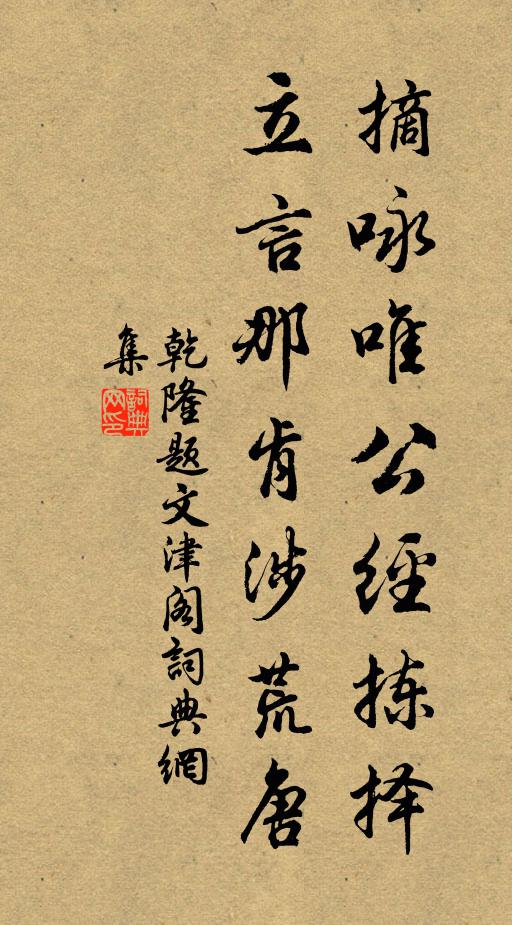 摘咏唯公經拣择
立言那肯涉荒唐
乾隆题文津阁詞典網
集
詞典
网印